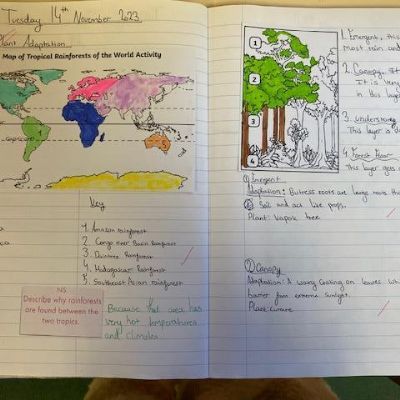 Tuesday 14th November 2023
Plant Adaptation
Map of Tropical Rainforests of the World Activity
Key
1. Amazon rainforest
2. Congo river Basin Rainforest
3. Daintree Rainforest
4. Madagascar Rainforest
5. Southeast Asian rainforest
NS
Describe why rainforests
are found between the
two tropics.
Because that area has
very hot temperatures
and climates.
1
2
3
4
1. Emergent, this
most rain and
2. Canopy. It
It is very
in this layer
3. understorey
This layer is d
4. Forest floor
This layer gets
① Emergent
Adaptation: Butress roots are
Soil and act like props.
Plant: Kapok tree.
② Canopy
Adaptation: A waxy Coating on leaves
barrier from extreme sunlight.
Plant: